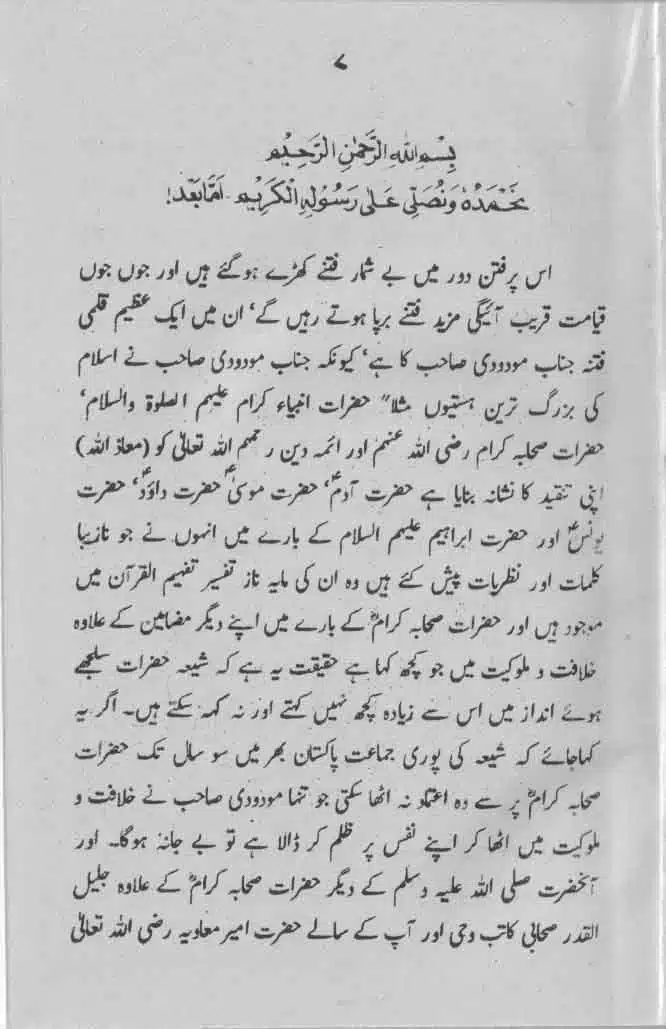 ۷
بِسْمِ اللهِ الرَّحْمٰنِ الرَّحِیْمِ
نَحْمَدُهٗ وَنُصَلِّیْ عَلٰی رَسُوْلِهِ الْکَرِیْمِ۔ اَمَّا بَعْد!
اس پرفتن دور میں بے شمار فتنے کھڑے ہوگئے ہیں اور جوں جوں
قیامت قریب آئیگی مزید فتنے برپا ہوتے رہیں گے، ان میں ایک عظیم قلمی
فتنہ جناب مودودی صاحب کا ہے، کیونکہ جناب مودودی صاحب نے اسلام
کی بزرگ ترین ہستیوں مثلا" حضرات انبیاء کرام علیہم الصلوۃ والسلام،
حضرات صحابہ کرام رضی اللہ عنہم اور ائمہ دین رحمہم اللہ تعالیٰ کو (معاذ اللہ)
اپنی تنقید کا نشانہ بنایا ہے حضرت آدمؑ، حضرت موسیٰؑ حضرت داؤدؑ، حضرت
یونسؑ اور حضرت ابراہیم علیہم السلام کے بارے میں انہوں نے جو نازیبا
کلمات اور نظریات پیش کئے ہیں وہ ان کی مایہ ناز تفسیر تفہیم القرآن میں
موجود ہیں اور حضرات صحابہ کرامؓ کے بارے میں اپنے دیگر مضامین کے علاوہ
خلافت و ملوکیت میں جو کچھ کہا ہے حقیقت یہ ہے کہ شیعہ حضرات سلجھے
ہوئے انداز میں اس سے زیادہ کچھ نہیں کہتے اور نہ کہہ سکتے ہیں۔ اگر یہ
کہاجائے کہ شیعہ کی پوری جماعت پاکستان بھر میں سو سال تک حضرات
صحابہ کرامؓ پر سے وہ اعتماد نہ اٹھا سکتی جو تنہا مودودی صاحب نے خلافت و
ملوکیت میں اٹھا کر اپنے نفس پر ظلم کر ڈالا ہے تو بے جانہ ہوگا۔ اور
آنحضرت صلی اللہ علیہ وسلم کے دیگر حضرات صحابہ کرامؓ کے علاوہ جلیل
القدر صحابی کاتب وحی اور آپ کے سالے حضرت امیر معاویہ رضی اللہ تعالیٰ